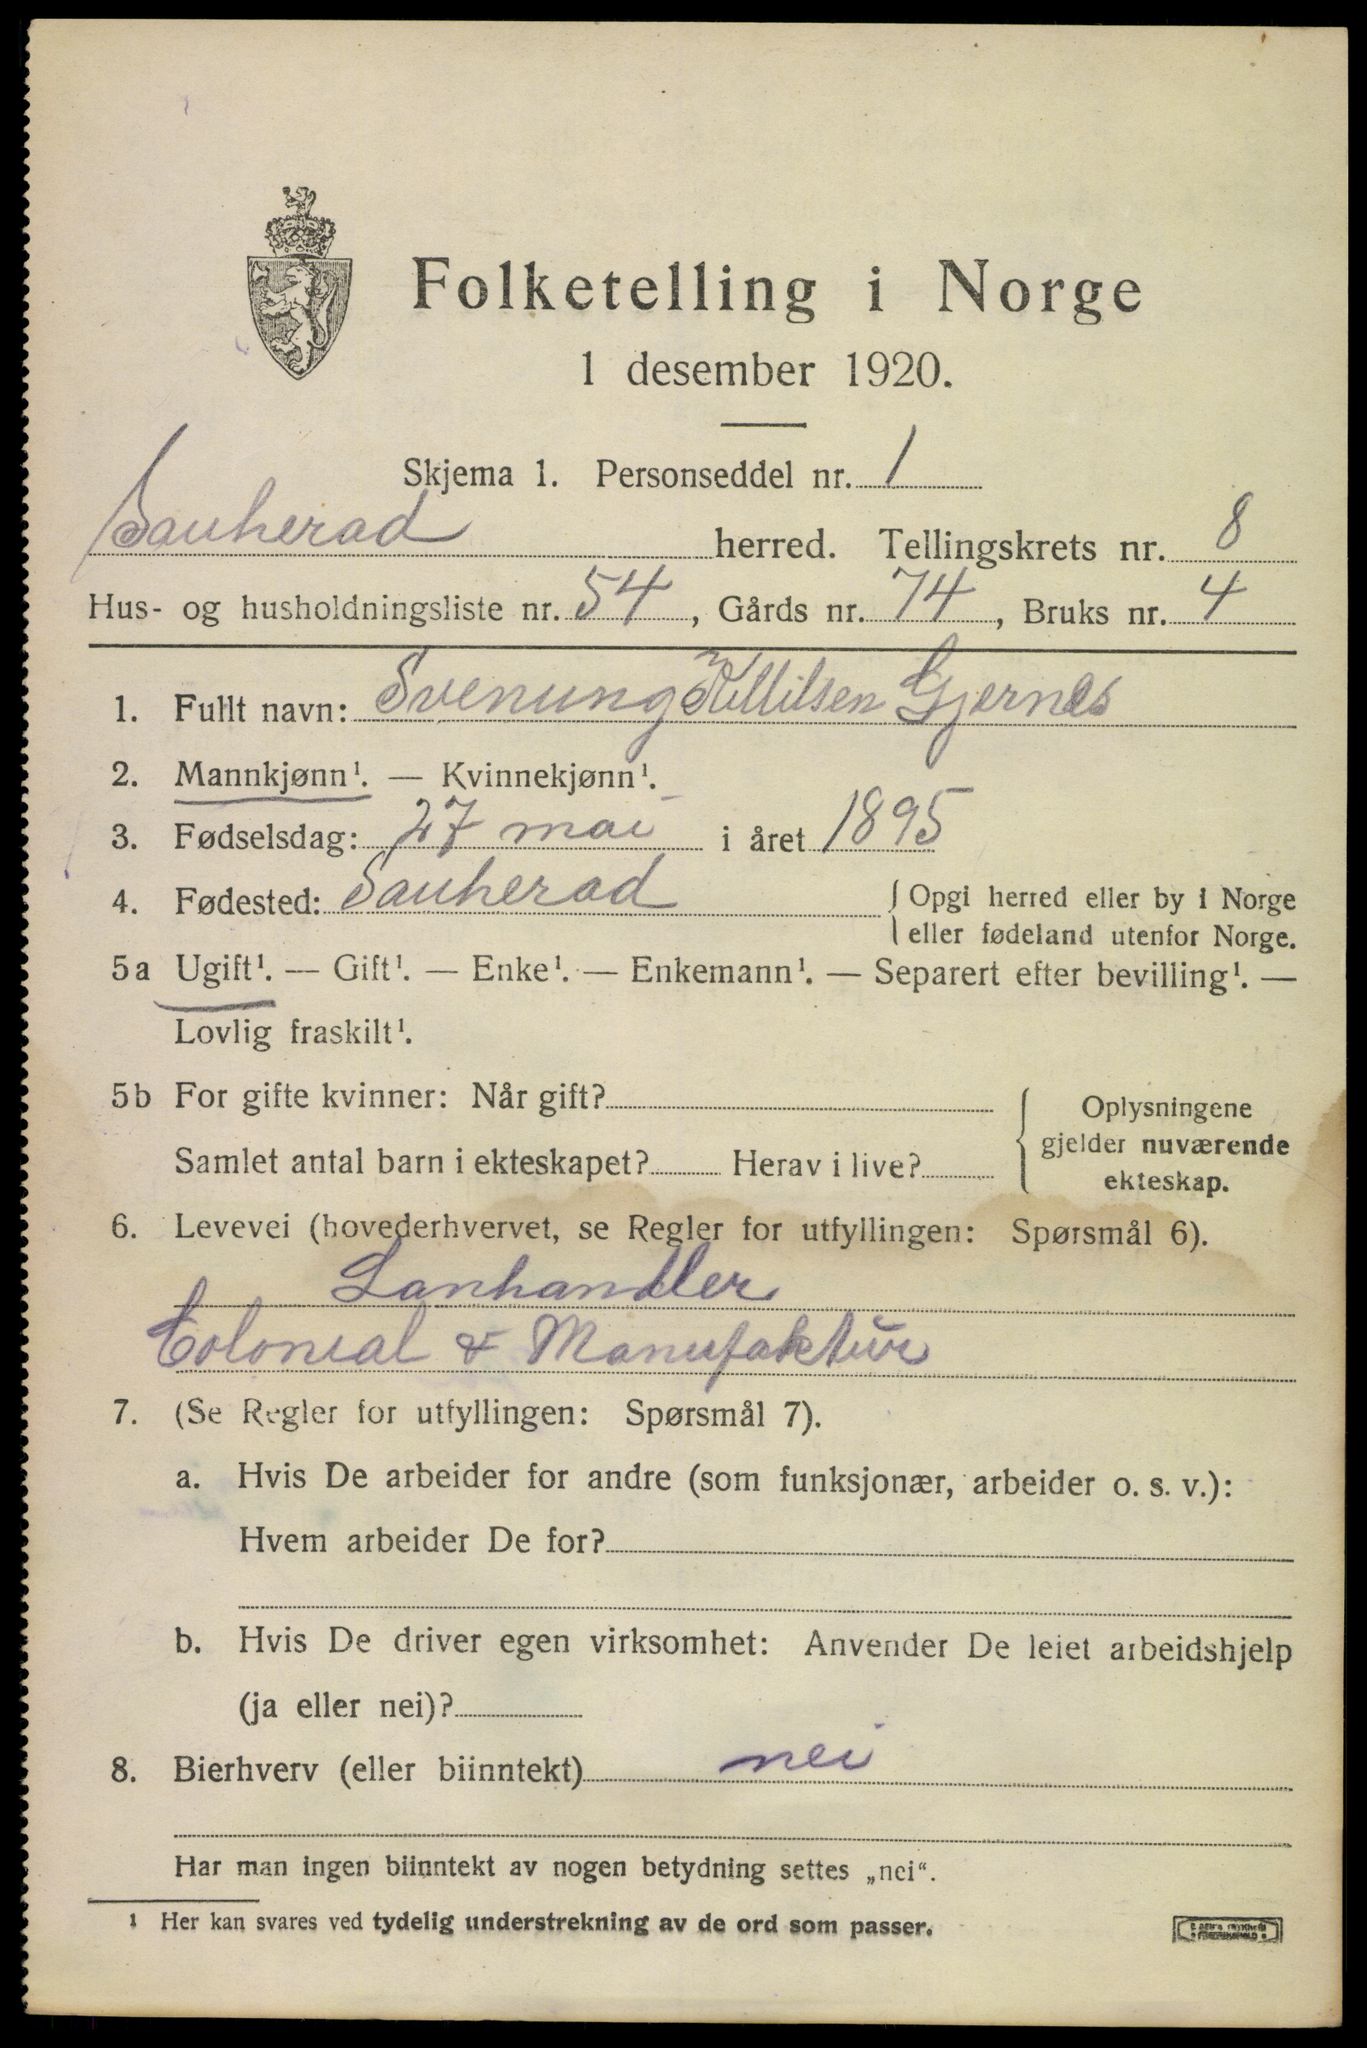 Folketelling i Norge
1 desember 1920.
Skjema 1. Personseddel nr. 1
Sauherad herred. Tellingskrets nr. 8
Hus- og husholdningsliste nr. 54, Gårds nr. 74, Bruks nr. 4
1. Fullt navn: Svenung Kittilsen Gjernes
2. Mannkjønn¹. — Kvinnekjønn¹.
3. Fødselsdag: 27 mai i året 1895
4. Fødested: Sauherad { Opgi herred eller by i Norge
eller fødeland utenfor Norge.
5a Ugift¹. — Gift¹. — Enke¹. — Enkemann¹. — Separert efter bevilling¹. —
Lovlig fraskilt¹.
5b For gifte kvinner: Når gift? { Oplysningene
gjelder nuværende
Samlet antal barn i ekteskapet? Herav i live?
ekteskap.
6. Levevei (hovederhvervet, se Regler for utfyllingen: Spørsmål 6).
Lanhandler
Colonial & Manufaktur
7. (Se Regler for utfyllingen: Spørsmål 7).
a. Hvis De arbeider for andre (som funksjonær, arbeider o. s. v.):
Hvem arbeider De for?
b. Hvis De driver egen virksomhet: Anvender De leiet arbeidshjelp
(ja eller nei)?
8. Bierhverv (eller biinntekt) nei
Har man ingen biinntekt av nogen betydning settes „nei“.
1 Her kan svares ved tydelig understrekning av de ord som passer.